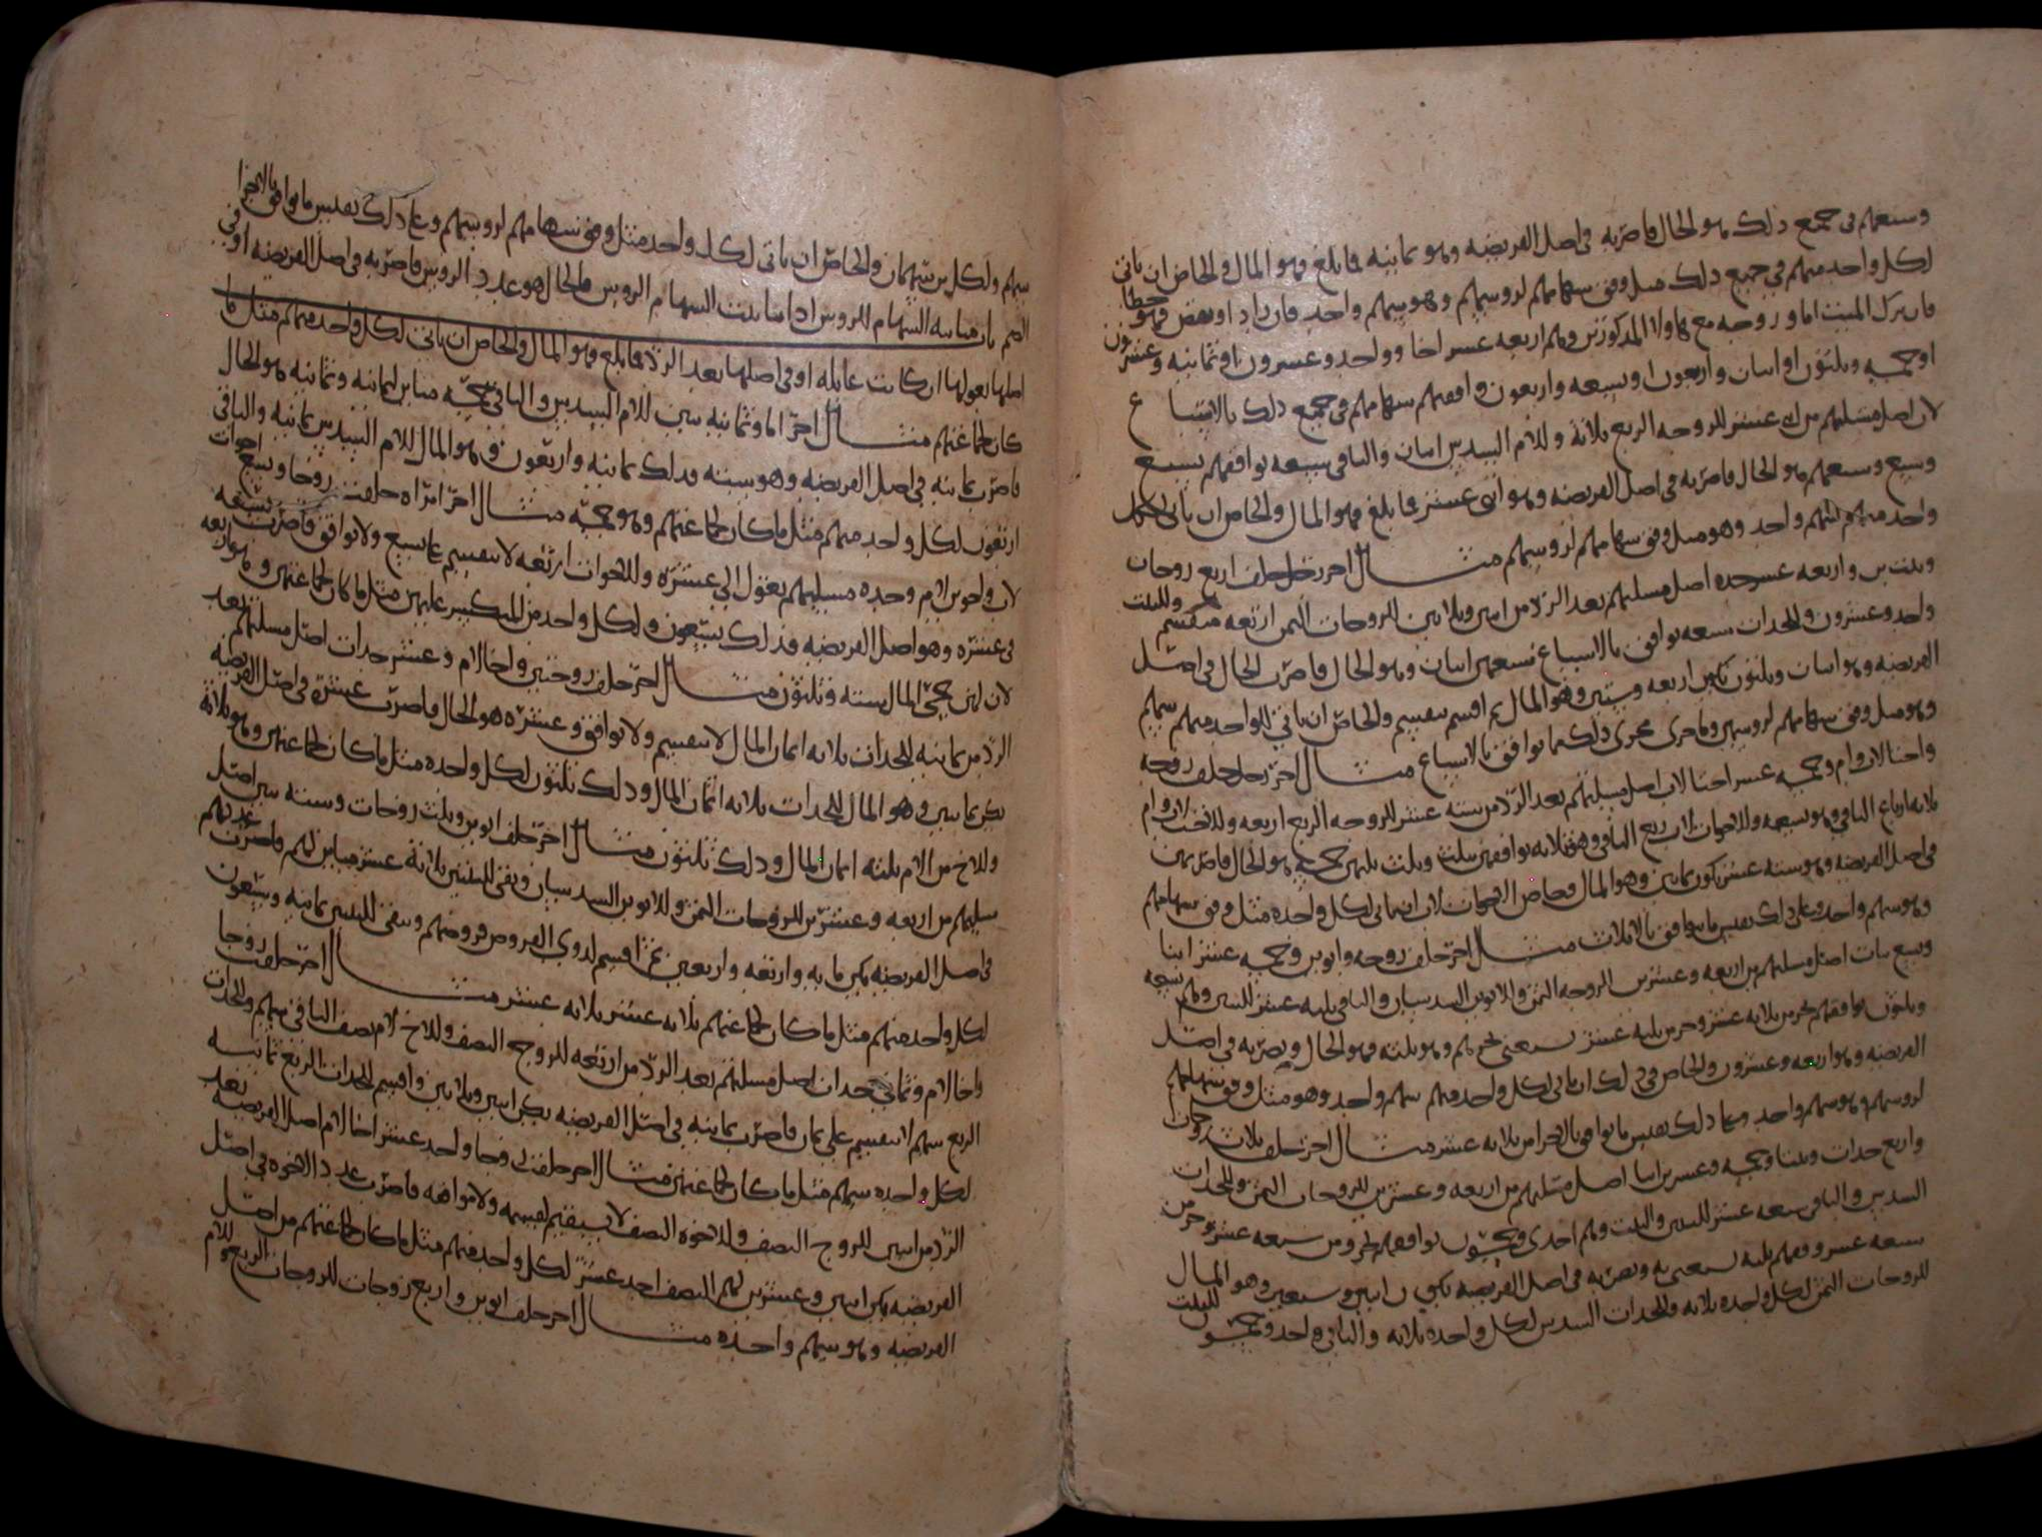 وسبعهم في جميع ذلك هو الحال فاضربه في اصل الفريضه وهو ثمانيه فما بلغ فهو المال والخاص ان ياتي
لكل واحد منهم في جميع ذلك مثل وفق سهامهم لروسهم وهو سهم واحد فان زاد او نقص فهو خطا
فان ترك الميت اما و زوجه مع هاولا المذكورين وهم اربعه عشر اخا و واحد وعشرون او ثمانيه وعشرون
او خمسه وثلثون او اثنان واربعون او تسعه واربعون وافقهم سهامهم في جميع ذلك بالاسباع
لان اصل مسلتهم من اثنى عشر للزوجه الربع ثلاثة وللام السدس اثنان والباقي سبعه توافقهم بسبع
وسبع وسبعهم هو الحال فاضربه في اصل الفريضه وهو اثنى عشر فما بلغ فهو المال والخاص ان ياتي لكل
واحد منهم سهم واحد وهو مثل وفق سهامهم لروسهم مثال اخر رجل خلف اربع زوجات
وبنت ابن واربعه عشر جده اصل مسلتهم بعد الرد من اثنين وثلاثين للزوجات الثمن اربعه منقسم وللبنت
واحد وعشرون وللجدات سبعه توافق بالاسباع فسبعهن اثنان وهو الحال فاضرب الحال في اصل
الفريضه وهو اثنان وثلثون تكون اربعه وستين وهو المال ثم اقسم تقسيم والخاص ان ياتي للواحد منهم سهم
وهو مثل وفق سهامهم لروسهن وما جرى مجرى ذلك مما توافق بالاسباع مثال اخر رجل خلف زوجه
واختا لاب وام وخمسه عشر اختا لاب اصل مسلتهم بعد الرد من سته عشر للزوجه الربع اربعه وللاخت لاب وام
ثلاثه ارباع الباقي وهو تسعه وللاخوات لاب ربع الباقي وهو ثلاثه توافقهن بثلث وثلث ثلثهن خمسه هو الحال فاضربهن
في اصل الفريضه وهو سته عشر تكون ثمانين وهو المال وخاص الاخوات لاب ان ياتي لكل واحده مثل وفق سهامهم
وهو سهم واحد وعلى ذلك تقيس ما يوافق بالاثلاث مثال اخر خلف زوجه وابوين وخمسه عشر ابنا
وسبع بنات اصل مسلتهم من اربعه وعشرين للزوجه الثمن وللابوين السدسان والباقي ثلثه عشر للبنين وهم تسعه
وثلثون يوافقهم بجزء من ثلاثه عشر وجزء من ثلثه عشر يعني هم وهو ثلثه فهو الحال ويضربه في اصل
الفريضه وهو اربعه وعشرون والخاص في ذلك ان ياتي لكل واحد منهم سهم واحد وهو مثل وفق سهامهم
لروسهم وهو سهم واحد وعلى ذلك تقيس ما يوافق بالاجزا من ثلاثه عشر مثال اخر خلف ثلاث زوجات
واربع جدات وبنتا وخمسه وعشرين ابنا اصل مسلتهم من اربعه وعشرين للزوجات الثمن وللجدات
السدس والباقي سبعه عشر للبنين والبنت وهم احدى وخمسون توافقهم بجزء من سبعه عشر وجزء من
سبعه عشر وفقهم ثلثه يعني به وتضربه في اصل الفريضه تكون اثنين وسبعين وهو المال
للزوجات الثمن لكل واحده ثلاثه وللجدات السدس لكل واحده ثلاثه والباقي واحد وخمسون للبنت
سهم ولكل ابن سهمان والخاص ان ياتي لكل واحد مثل وفق سهامهم لروسهم وعلى ذلك تقيس ما توافق بالاجزا
الصم باب مباينه السهام للروس اذا باينت السهام الروس فالحال هو عدد الروس فاضربه في اصل الفريضه او في
اصلها بعولها ان كانت عايله او في اصلها بعد الرد فما بلغ فهو المال والخاص ان ياتي لكل واحد منهم مثل ما
كان لجماعتهم مثال اخر اما وثمانيه بنين للام السدس والباقي خمسه مباين لثمانيه وثمانيه هو الحال
فاضرب ثمانيه في اصل الفريضه وهو سته فذلك ثمانيه واربعون وهو المال للام السدس ثمانيه والباقي
اربعون لكل واحد منهم مثل ما كان لجماعتهم وهو خمسه مثال اخر امراه خلفت زوجا وسبع اخوات
لاب واخوين لام وجده مسلتهم تعول الى عشره وللاخوات اربعه لا تنقسم على سبع ولا توافق فاضرب سبعه
في عشره وهو اصل الفريضه فذلك سبعون ولكل واحد من المنكسر عليهن مثل ما كان لجماعتهن وهو اربعه
مثال اخر خلف زوجتين واخا لام وعشر جدات اصل مسلتهم بعد
الرد من ثمانيه للجدات ثلاثه اثمان المال لا تنقسم ولا توافق وعشره هو الحال فاضرب عشره في اصل الفريضه
تكن ثمانين وهو المال للجدات ثلاثه اثمان المال وذلك ثلثون لكل واحده مثل ما كان لجماعتهن وهو ثلاثه
وللاخ من الام ثلثه اثمان المال وذلك ثلثون مثال اخر خلف ابوين وثلث زوجات وسته بنين اصل
مسلتهم من اربعه وعشرين للزوجات الثمن وللابوين السدسان وبقي للبنين ثلاثة عشر مباين لهم فاضرب عددهم
في اصل الفريضه تكن مايه واربعه واربعين ثم اقسم لذوي الفروض فروضهم وبقي للبنين ثمانيه وسبعون
لكل واحد منهم مثل ما كان لجماعتهم ثلاثه عشر ثلاثه عشر مثال اخر خلفت زوجا
واخا لام وثماني جدات اصل مسلتهم بعد الرد من اربعه للزوج النصف وللاخ لام نصف الباقي سهم وللجدات
الربع سهم لا تنقسم على ثمان فاضرب ثمانيه في اصل الفريضه تكن اثنين وثلاثين واقسم للجدات الربع ثمانيه
لكل واحده سهم مثل ما كان لجماعتهن مثال اخر خلفت زوجا واحد عشر اخا لام اصل الفريضه بعد
الرد من اثنين للزوج النصف وللاخوه النصف لا يستقيم لقسمه ولا موافقه فاضرب عدد الاخوه في اصل
الفريضه تكن اثنين وعشرين لهم النصف احد عشر لكل واحد منهم مثل ما كان لجماعتهم من اصل
الفريضه وهو سهم واحده مثال اخر خلف ابوين واربع زوجات للزوجات الربع وللام